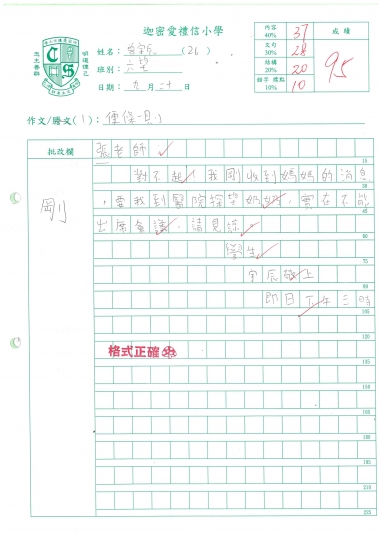 迦密愛禮信小學
姓名： (26)
班別：六望
日期：九月二十日
內容 40% 37
文句 30% 28
結構 20% 20
錯字 標點 10% 10
成績
95
作文/謄文(1)：便條
批改欄
剛
張老師：
對不起！我剛收到媽媽的消息
，要我到醫院探望奶奶，實在不能
出席會議，請見諒。
學生
宇辰敬上
即日下午三時
格式正確
15
30
45
60
75
90
105
120
135
150
165
180
195
210
225